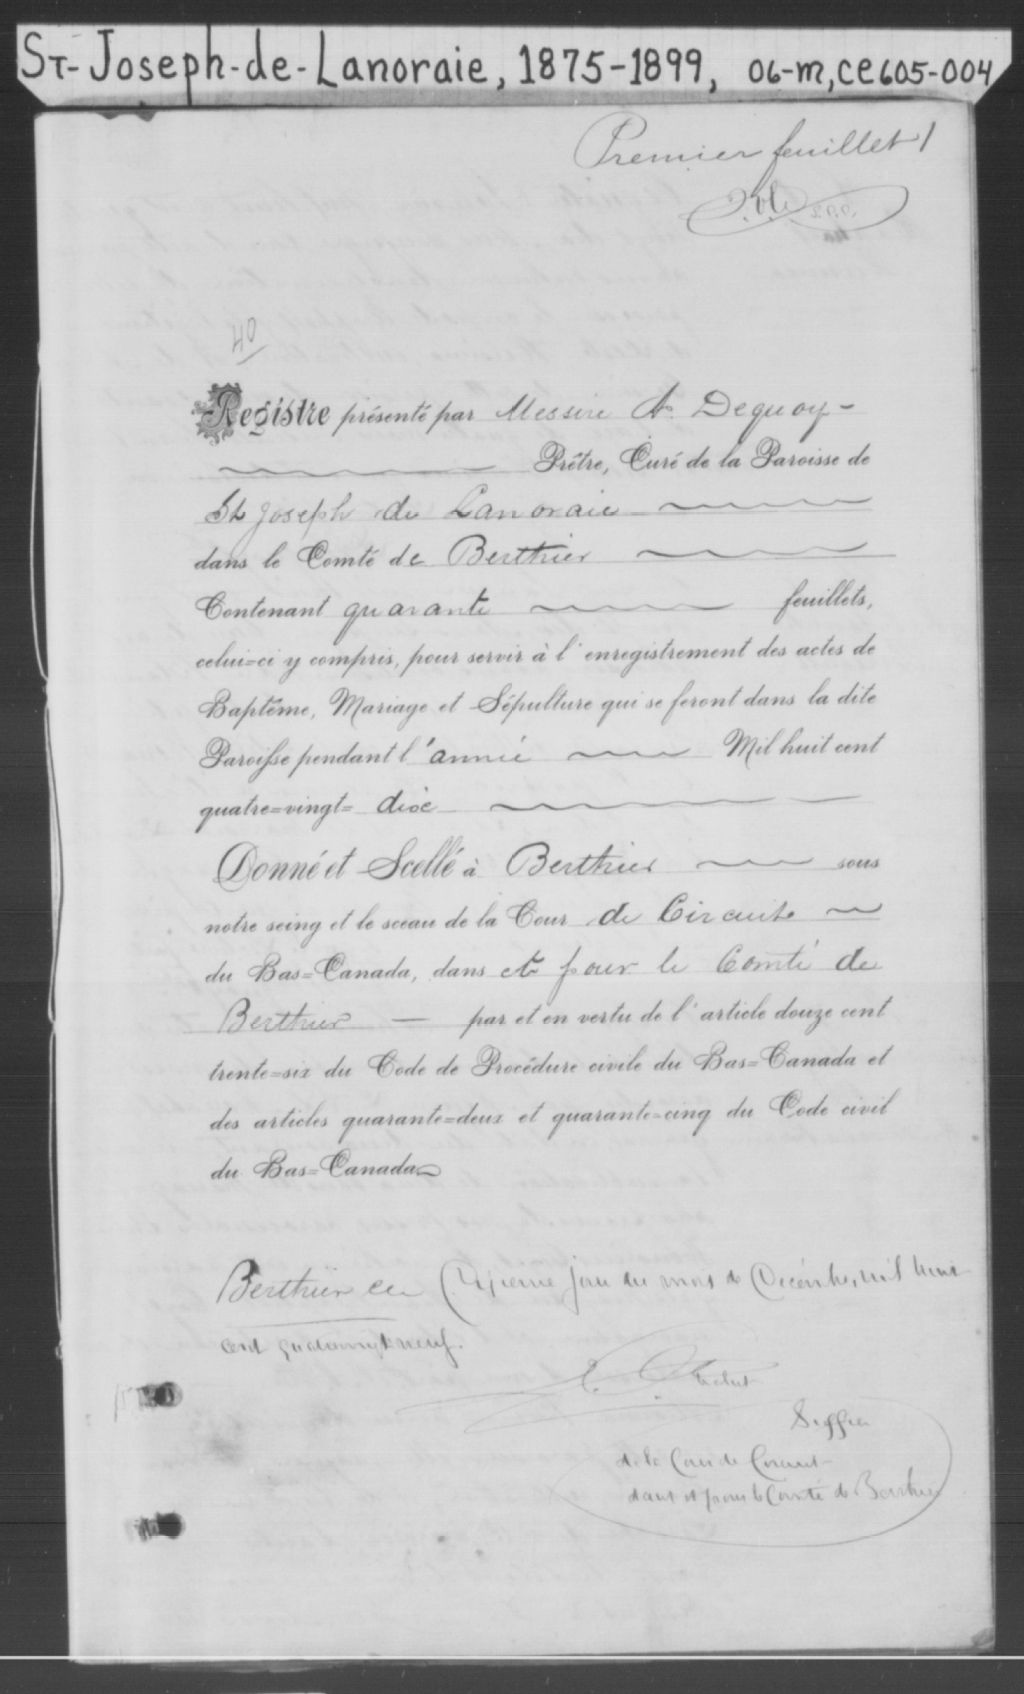 St-Joseph-de-Lanoraie, 1875-1899, 06-M, CE605-004
Premier feuillet 1
40
Registre présenté par Messire A. Dequoy -
Prêtre, Curé de la Paroisse de
St Joseph de Lanoraie
dans le Comté de Berthier
Contenant quarante feuillets,
celui=ci y compris, pour servir à l'enregistrement des actes de
Baptême, Mariage et Sépulture qui se feront dans la dite
Paroisse pendant l'année Mil huit cent
quatre=vingt= dix
Donné et Scellé à Berthier sous
notre seing et le sceau de la Cour de Circuit
du Bas=Canada, dans et pour le Comté de
Berthier — par et en vertu de l'article douze cent
trente=six du Code de Procédure civile du Bas=Canada et
des articles quarante=deux et quarante=cinq du Code civil
du Bas=Canada
Berthier ce jour du mois de Décembre mil huit
cent quatrevingt neuf.
de la Cour de Circuit
dans et pour le Comté de Berthier